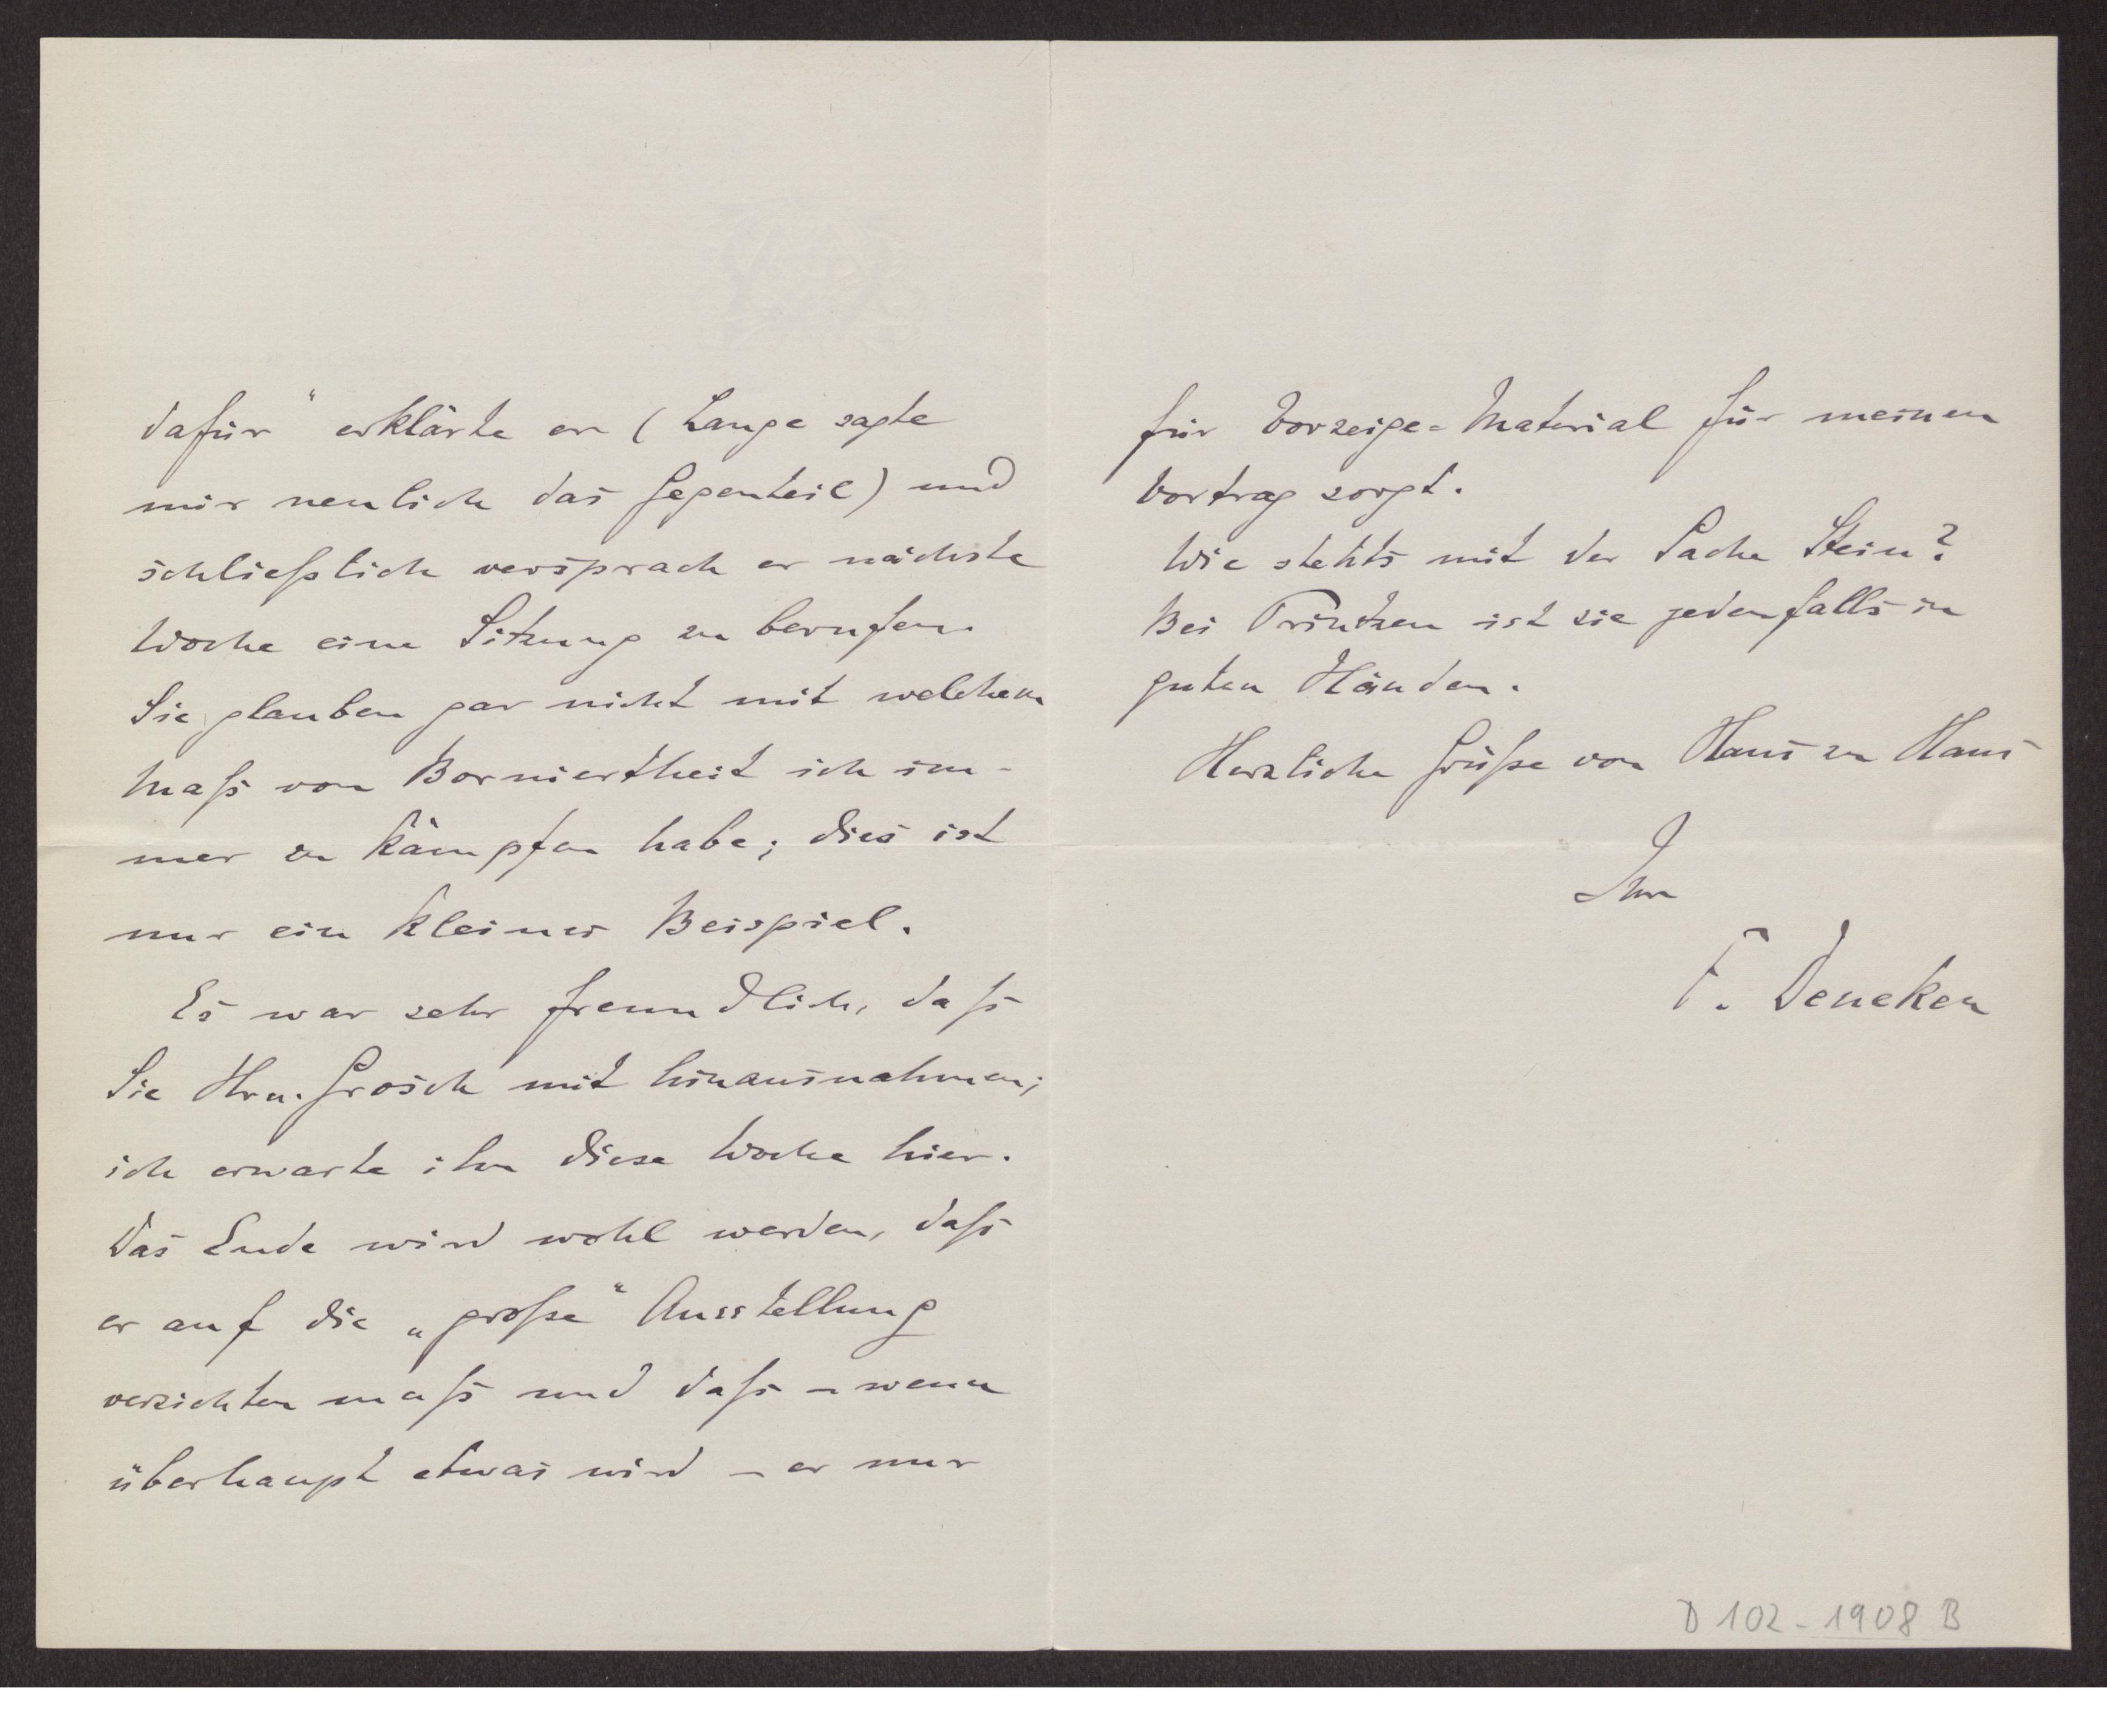 dafür“ erklärte er (Lange sagte
mir neulich das Gegenteil) und
schließlich versprach er nächste
Woche eine Sitzung zu berufen.
Sie glauben gar nicht mit welchem
Maß von Borniertheit ich im-
mer zu kämpfen habe; dies ist
nur ein kleines Beispiel.
Es war sehr freundlich, daß
Sie Hrn. Grosch mit hinausnahmen;
ich erwarte ihn diese Woche hier.
Das Ende wird wohl werden, daß
er auf die „große“ Ausstellung
verzichten muß und daß – wenn
überhaupt etwas wird – er nur
für Vorzeige=Material für meinen
Vortrag sorgt.
Wie stehts mit der Sache Stein?
Bei Printzen ist sie jedenfalls in
guten Händen.
Herzliche Grüße von Haus zu Haus
Ihr
F. Deneken
D 102 - 1908 B